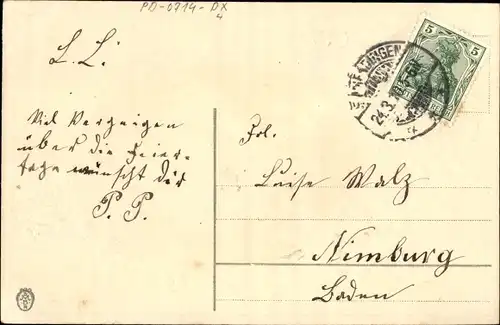 PD-0714-DX
4
L. L.
Viel Vergnügen
über die Feier-
tage wünscht dir
P. P.
5
5
24.3.
Frl.
Luise Walz
Nimburg
Baden